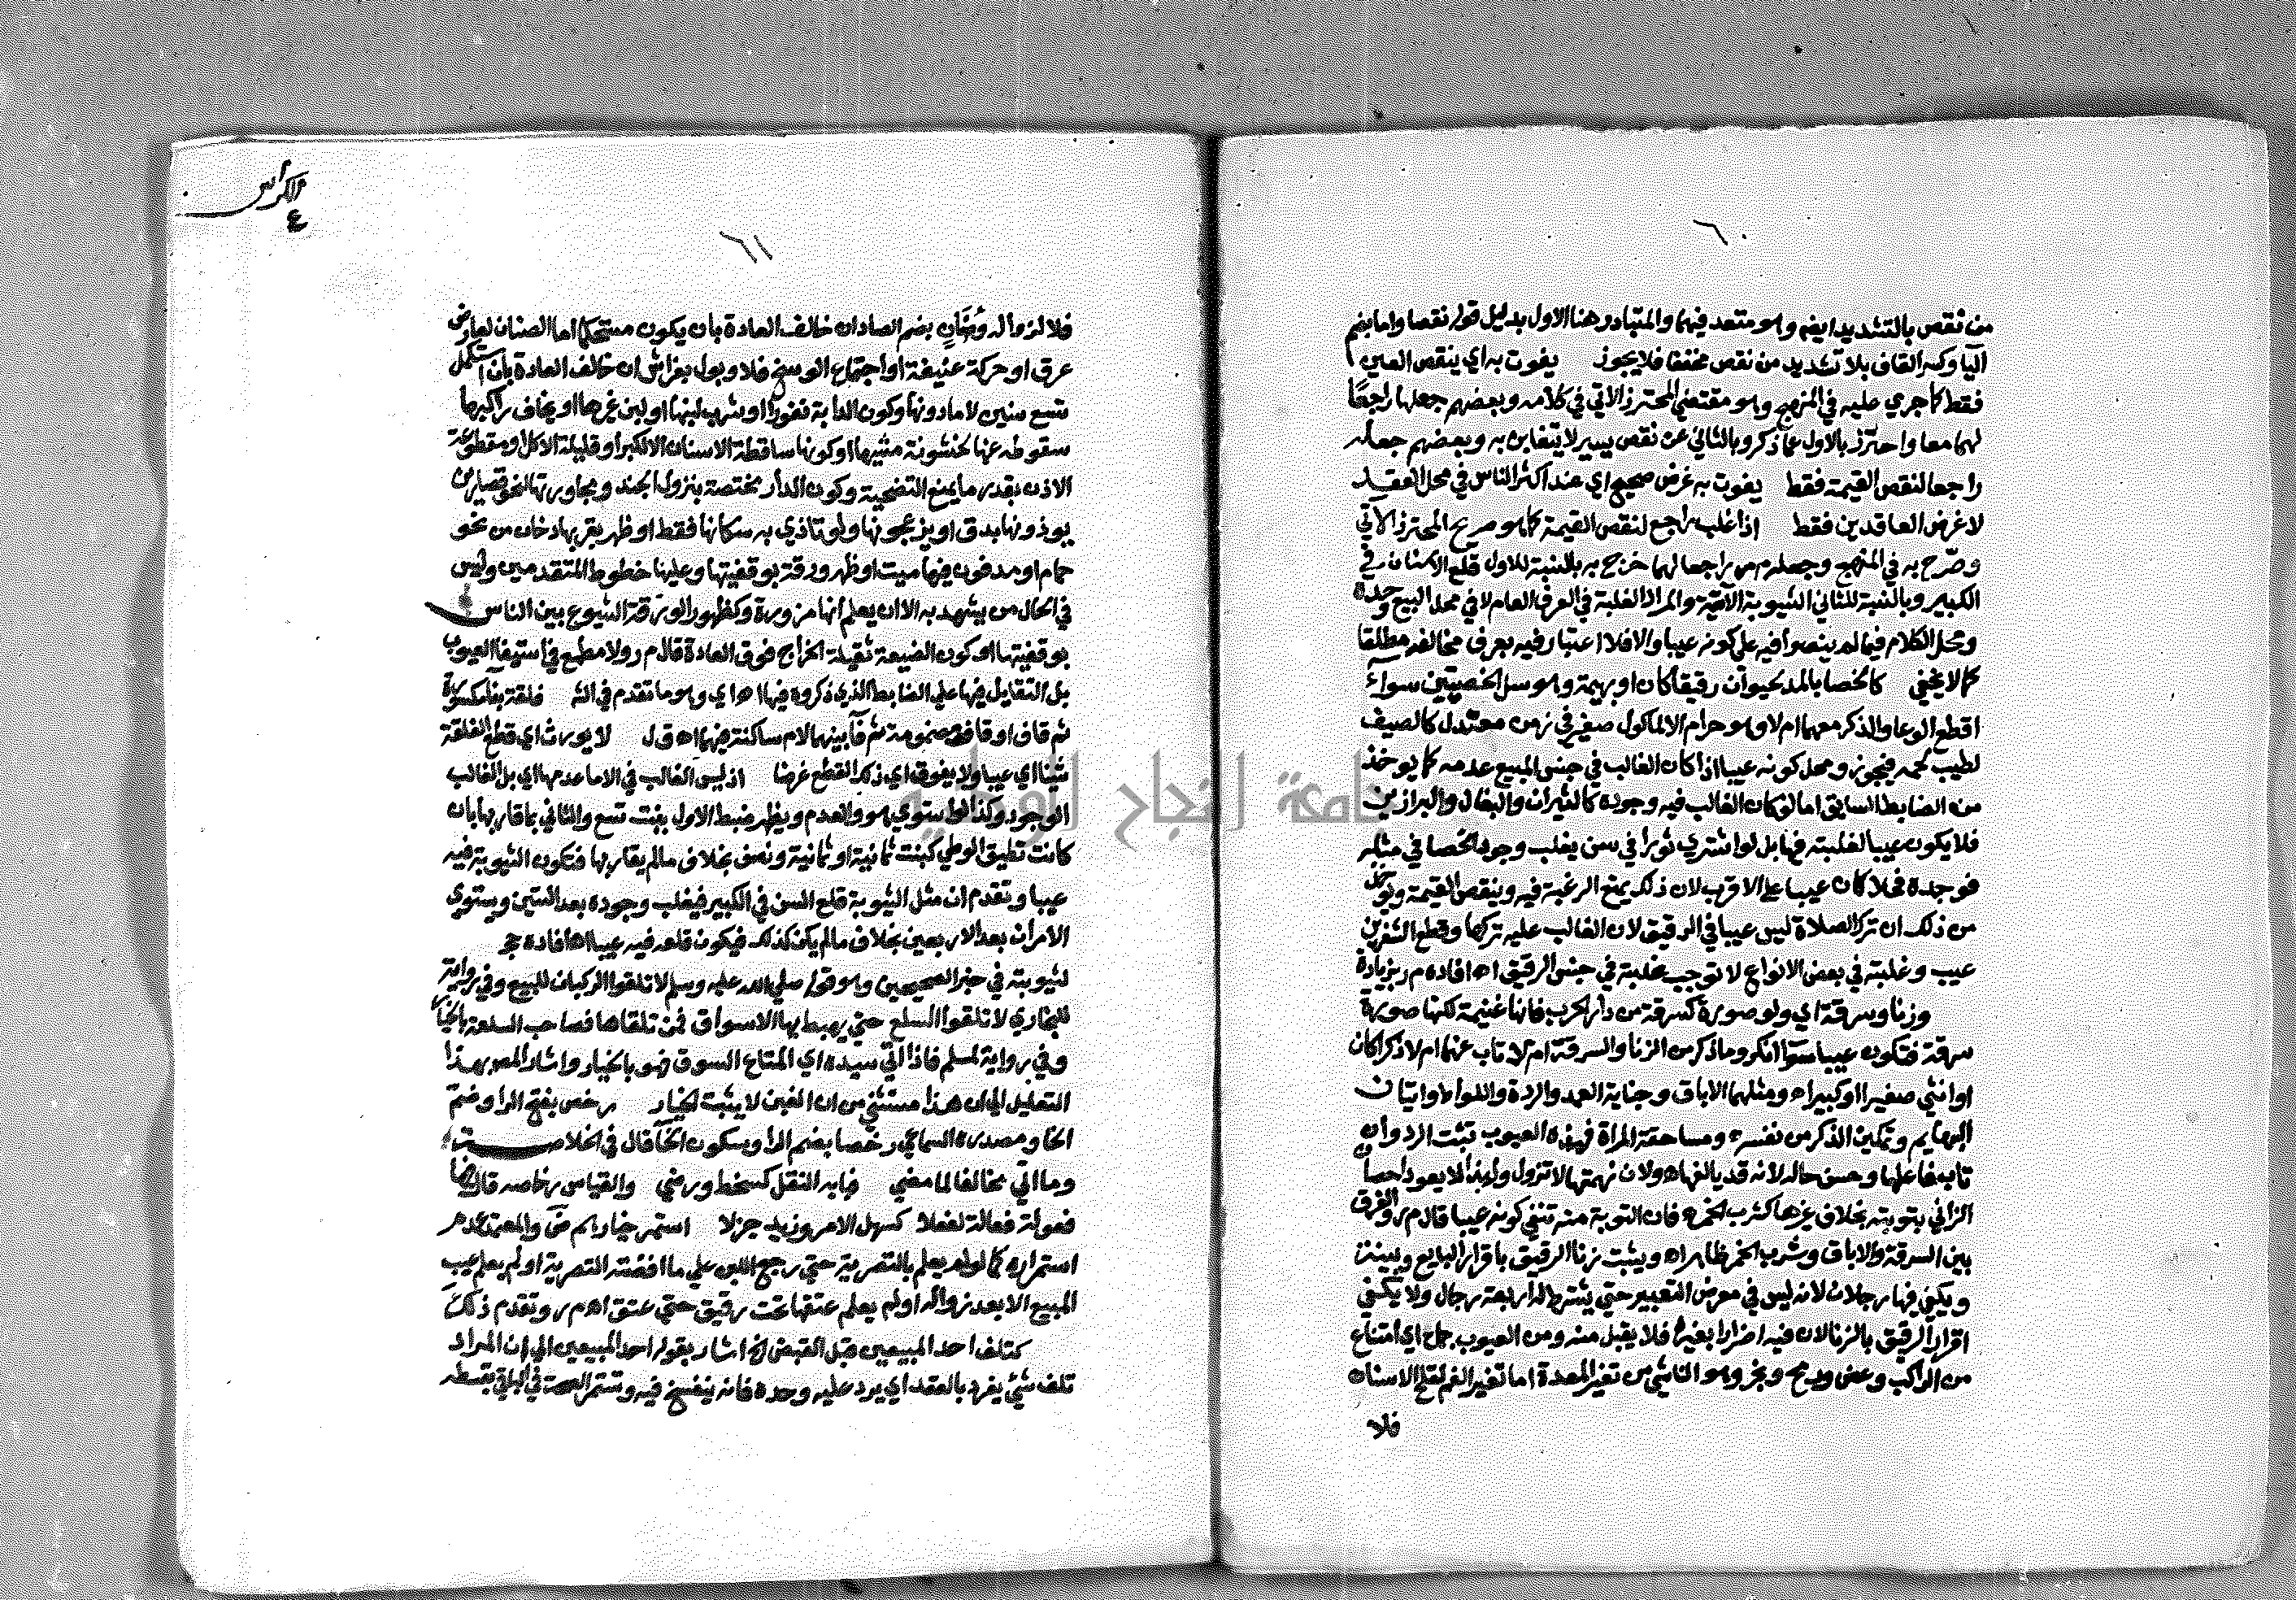 ٦٠
من نقص بالتشديد ايضا وهو متعد فيهما والمتبادر هنا الاول بدليل قوله نقصا واما بضم
اليا وكسر القاف بلا تشديد من نقص مخففا فلا يجوز يفوت به اي ينقص العين
فقط كما جري عليه في المنهج وهو مقتضي المحترز الاتي في كلامه وبعضهم جعلها راجعا
لهما معا واحترز بالاول عما ذكر وبالثاني عن نقص يسير لا يتغابن به وبعضهم جعله
راجعا لنقص القيمة فقط يفوت به غرض صحيح اي عند اكثر الناس في محل العقد
لا غرض العاقدين فقط اذا غلب راجع لنقص القيمة كما هو صريح المحترز الاتي
وصرح به في المنهج وجعله م ر راجعا لهما خرج به بالنسبة للاول قلع الاسنان في
الكبير وبالنسبة للثاني الثيوبة الاتية والمراد الغلبة في العرف العام لا في محل البيع وحده
ومحل الكلام فيما لم ينصوا فيه علي كونه عيبا والا فلا اعتبار فيه بعرف مخالف مطلقا
كما لا يخفي كالخصا بالمد لحيوان رقيقا كان او بهيمة وهو سل الخصيتين سواء
اقطع الوعا والذكر معهما ام لا وهو حرام الا لماكول صغير في زمن معتدل كالصيف
لطيب لحمه فيجوز ومحل كونه عيبا اذا كان الغالب في جنس المبيع عدمه كما يوخذ
من الضابط السابق اما لو كان الغالب فيه وجوده كالثيران والبغال والبراذين
فلا يكون عيبا لغلبته فيها بل لو اشتري ثورا في سن يغلب وجود الخصا في مثله
فوجده فحلا كان عيبا علي الاقرب لان ذلك يمنع الرغبة فيه وينقص القيمة
من ذلك ان ترك الصلاة ليس عيبا في الرقيق لان الغالب عليه تركها وقطع الشفرين
عيب وغلبته في بعض الانواع لا توجب غلبته في جنس الرقيق اه افاده م ر بزيادة
وزنا وسرقة اي ولو صورة كسرقة من دار الحرب فانها غنيمة لكنها صورة
سرقة فتكون عيبا سوا انكر وما ذكر من الزنا والسرقة ام لا تاب عنهما ام لا ذكرا كان
او انثي صغيرا او كبيرا اه ومثلهما الاباق وجناية العمد والردة واللواط واتيان
البهايم وتمكين الذكر من نفسه ومساحقة المراة فهذه العيوب تثبت الرد وان
تاب فاعلها وحسن حاله لانه قد يالفها اه ولان تهمتها لا تزول ولهذا لا يعود احصان
الزاني بتوبته بخلاف غيرها كشرب الخمر فان التوبة منه تنفي كونه عيبا قال م ر والفرق
بين السرقة والاباق وشرب الخمر ظاهر اه ويثبت زنا الرقيق باقرار البايع وببينة
ويكفي فيها رجلان لانه ليس في معرض التعيير حتي يشترط له اربعة رجال ولا يكفي
اقرار الرقيق بالزنا لان فيه اضرارا بغيره فلا يقبل منه ومن العيوب جماح اي امتناع
من الراكب وعض ورمح وبخر وهو الناشي من تغير المعدة اما تغير الفم لقلح الاسنان
فلا
٤ كراس
٦١
فلا لزواله وصنان بضم الصاد ان خالف العادة بان يكون مستحكما اما الصنان لعارض
عرق او حركة عنيفة او اجتماع الوسخ فلا وبول بفراش ان خالف العادة بان استكمل
تسع سنين لا ما دونها وكون الدابة نفورا او شرب لبنها او لبن غيرها او يخاف راكبها
سقوطه عنها لخشونة مشيها او كونها ساقطة الاسنان لا لكبر او قليلة الاكل او مقطوعة
الاذن بقدر ما يمنع التضحية وكون الدار مختصة بنزول الجند ومجاورتها لنحو قصارين
يوذونها بدق او يزعجونها ولو تاذي به سكانها فقط او ظهر بقربها دخان من نحو
حمام او مدفون فيها ميت او ظهر ورقة بوقفيتها وعليها خطوط المتقدمين وليس
في الحال من يشهد به الا ان يعلم انها مزورة وكظهور الورقة الشيوع بين الناس
بوقفيتها او كون الضيعة ثقيلة الخراج فوق العادة قال م ر ولا مطمع في استيفا العيوب
بل التعويل فيها علي الضابط الذي ذكروه فيها اه اي وهو ما تقدم في الش فلقة بفا مكسورة
ثم قاف او قاف مضمومة ثم فا بينهما لام ساكنة فيهما اه ق ل لا يورث اي قطع الفلقة
شينا اي عيبا ولا يفوت اي ذكر القطع غرضا اذ ليس الغالب في الاما عدمها اي بل الغالب
الوجود وكذا لو استوي هو والعدم ويظهر ضبط الاول ببنت تسع والثاني بما قاربها بان
كانت تطيق الوطي كبنت ثمانية او ثمانية ونصف بخلاف ما لم يقاربها فتكون الثيوبة فيه
عيبا وتقدم ان مثل الثيوبة قلع السن في الكبير فيغلب وجوده بعد الستين ويستوي
الامران بعد الاربعين بخلاف ما لم يكن كذلك فيكون قلعه فيه عيبا اه افاده حج
لثيوبته في خبر الصحيحين وهو قوله صلي الله عليه وسلم لا تلقوا الركبان للبيع وفي رواية
للبخاري لا تلقوا السلع حتي يهبط بها الاسواق فمن تلقاها فصاحب السلعة بالخيار
وفي رواية لمسلم فاذا اتي سيده اي المتاع السوق فهو بالخيار واشار المص بهذا
التعليل الي ان هذا مستثني من ان الغبن لا يثبت الخيار رخص بفتح الرا وضم
الخا ومصدره السماعي رخصا بضم الرا وسكون الخا قال في الخلاصة
وما اتي مخالفا لما مضي فبابه النقل كسخط ورضي والقياس رخاصة قال ايضا
فعولة فعالة لفعلا كسهل الامر وزيد جزلا استمر خياره والمعتمد عدم
استمراره كما لو لم يعلم بالتصرية حتي رجع اللبن علي ما افضته التصرية او لم يعلم عيب
المبيع الا بعد زواله او لم يعلم عتقها تحت رقيق حتي عتق اه م ر وتقدم ذلك
كتلف احد المبيعين قبل القبض الخ اشار بقوله احد المبيعين الي ان المراد
تلف شي يفرد بالعقد اي يرد عليه وحده فانه ينفسخ فيه وتستمر الصحة في الباقي بقسطه